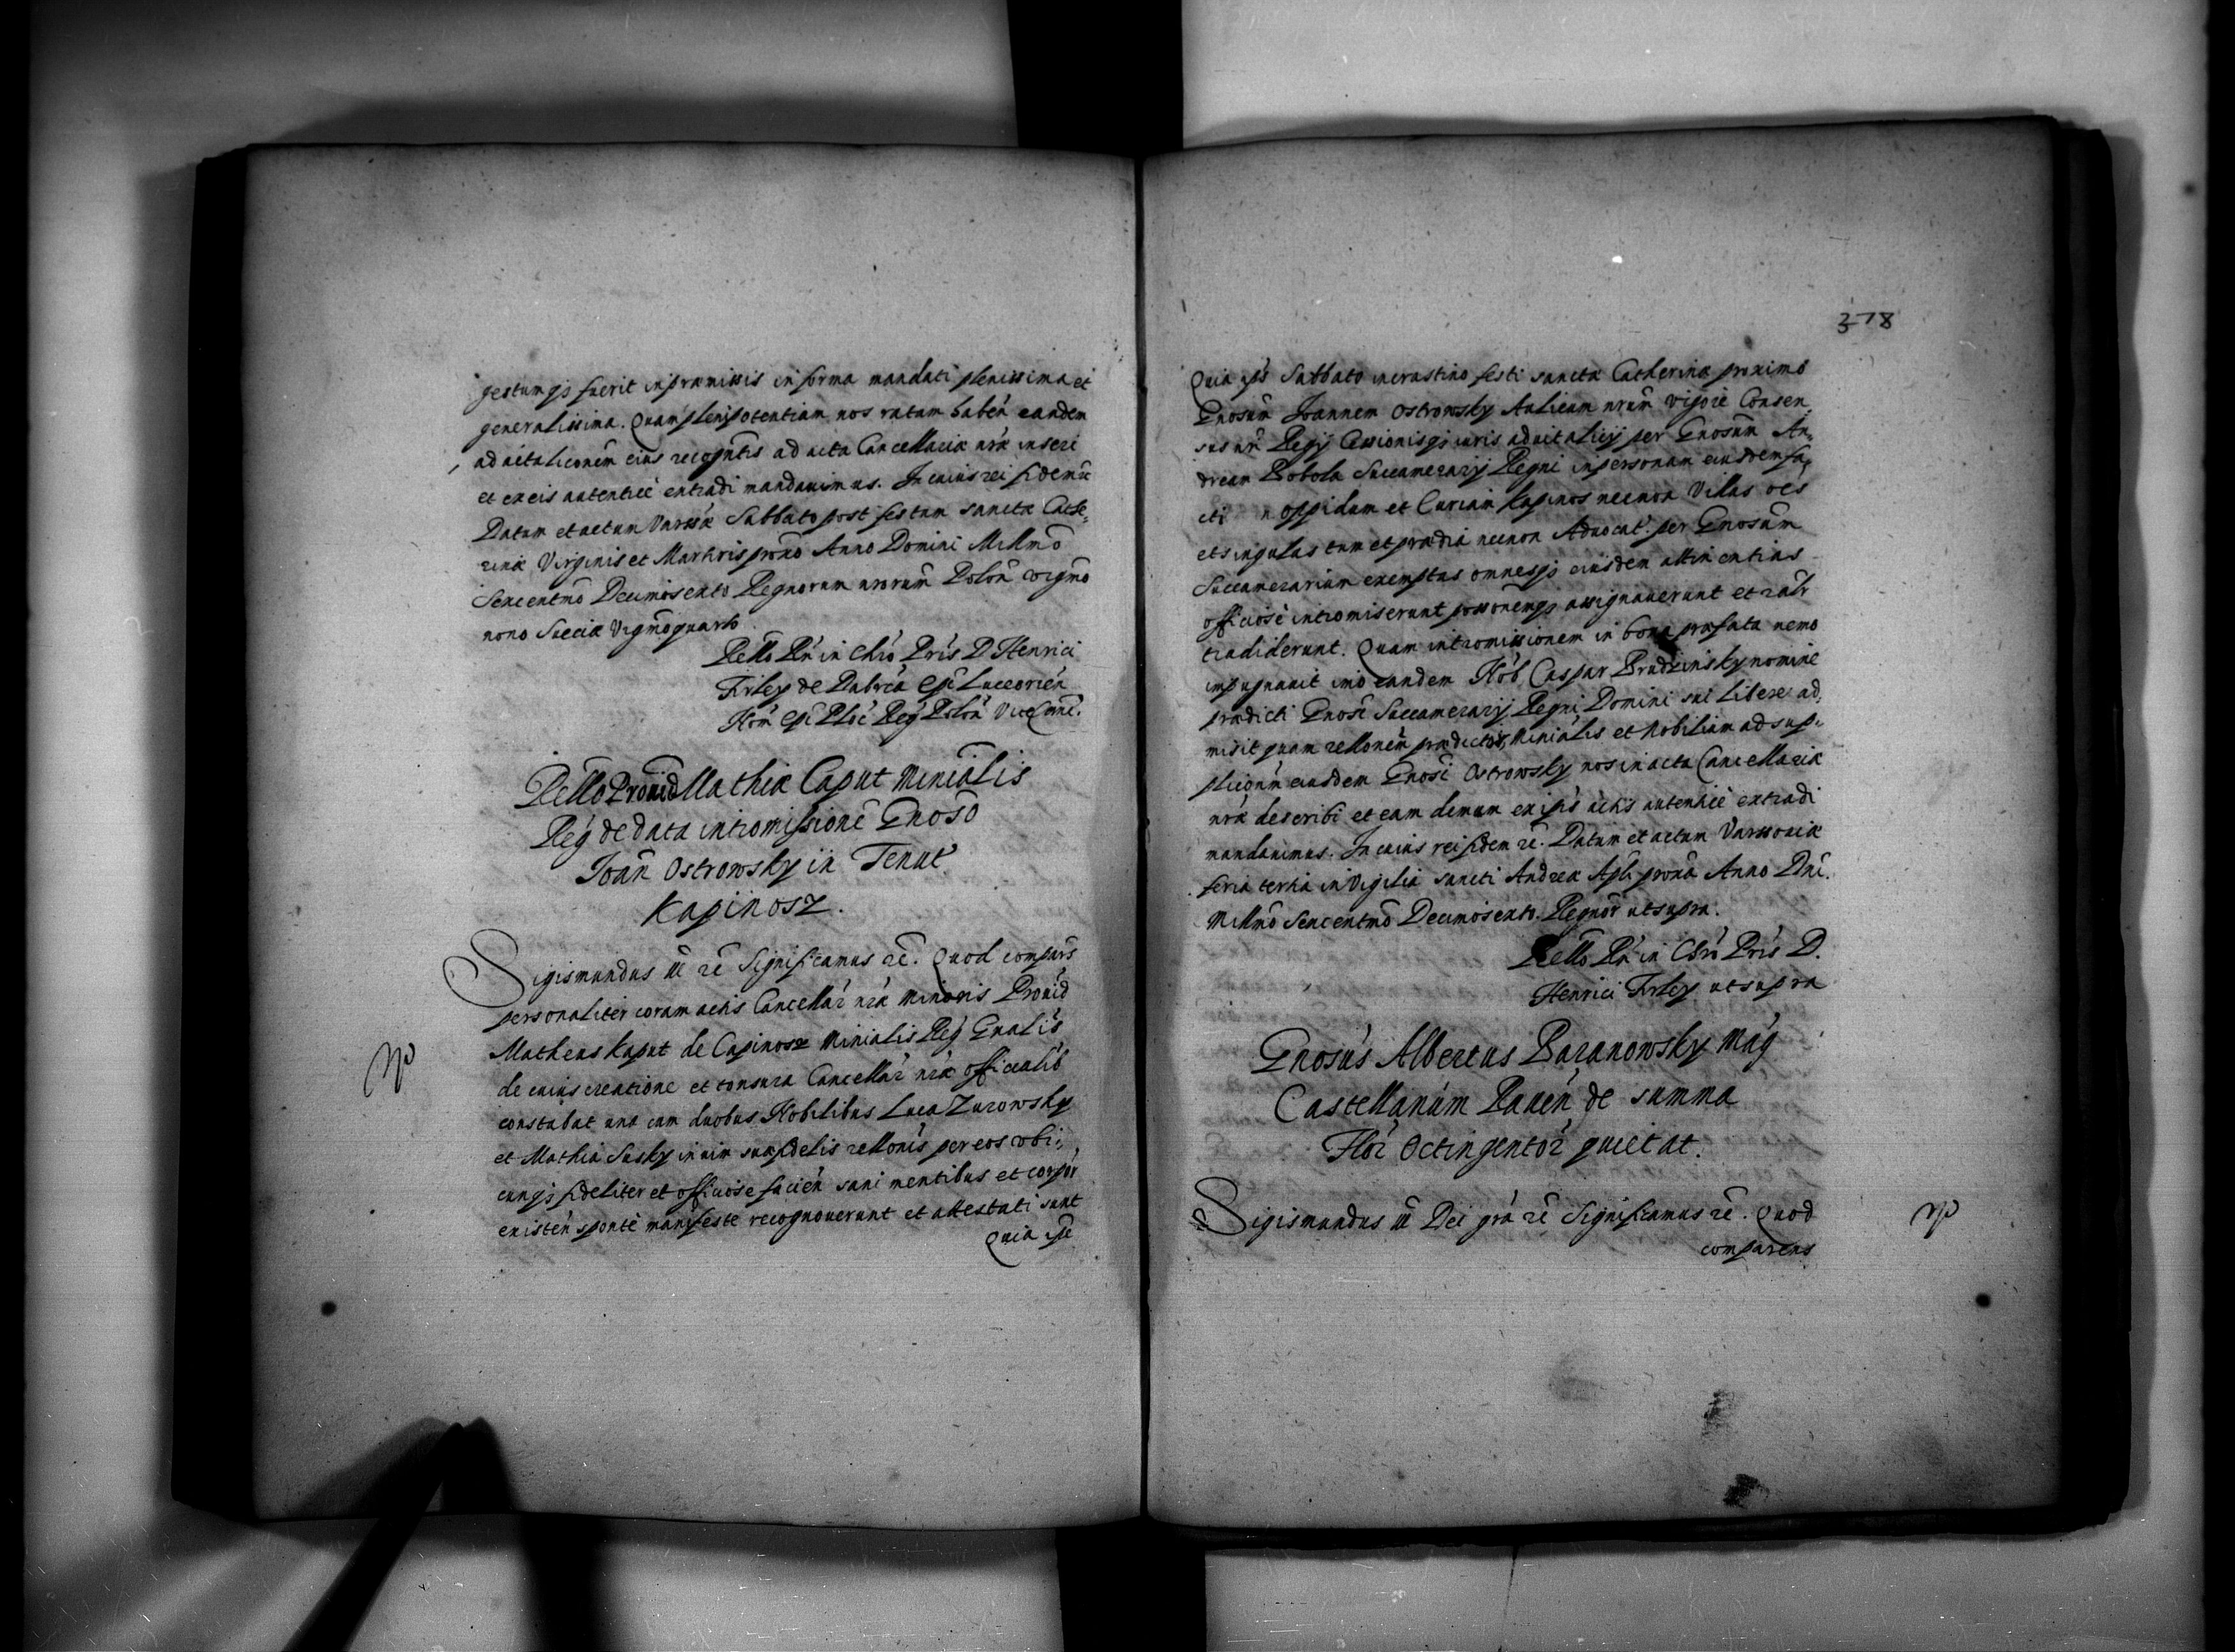 gestumqз fuerit in præmissis in forma mandati plenissima et
generalissima. Quam plenipotentiam nos ratam habeñ eandem
ad vitaliconem eius recogntis ad acta Cancellariæ nræ inseri
et ex eis autentice extradi mandavimus. In cuius rei fidem ꝛc
Datum et actum Varssæ Sabbato post festum sanctæ Cathe=
rinæ Virginis et Martiris proxo Anno Domini Millmo
Sexcentmo Decimosexto Regnorum nrorum Polon vigmo
nono Sueciæ Vigmoquarto
Rello Rñ in Chro Pris D Henrici
Firley de Dabrca Epi Luceorien
Nom Epi Ploc Reg Polon ViceCanc.
Rello Provid Mathiæ Caput Minialis
Reg de data intromissione Gnoso
Ioan Ostrowsky in Tenut
Kapinosz.
Sigismundus III ꝛc Significamus ꝛc. Quod compars
personaliter coram actis Cancellar nræ Minoris Provid
Matheus Kaput de Capinosz Minialis Reg Gnalis
de cuius creatione et tonsura Cancellar nræ officialib
constabat una cum duobus Nobilibus Luca Zurowsky
et Mathia Susky in vim suæ fidelis rellonis per eos vbi=
cunqз fideliter et officiose facien sani mentibus et corpor
existen sponte manifeste recognoverunt et attestati sunt
Quia ipse
378
Quia ips Sabbato in crastino festi sanctæ Catherinæ proximo
Gnosum Joannem Ostrowsky Aulicum nrum vigore Consen=
sus nri Regij Cessionisqз iuris advitalicij per Gnosum An=
dream Bobola Succamerarij Regni in personam eiusdem fa=
cti n oppidum et Curiam Kapinos necnon Villas oes
et singulas tum et prædia necnon Advocat per Gnosum
Succamerarium exemptas omnesqз eiusdem attinentias
officiose intromiserunt possonemqз assignaverunt et ealr
tradiderunt. Quam intromissionem in bona præfata nemo
impugnavit imo eandem Nob Caspar Brudzinsky nomine
prædicti Gnosi Succamerarij Regni Domini sui libere ad=
misit quam rellonem prædictor Minialis et Nobilium ad sup=
pliconm eiusdem Gnosi Ostrowsky nos in acta Cancellariæ
nræ describi et eam demum ex ipis actis autentice extradi
mandavimus. In cuius rei fidem ꝛc. Datum et actum Varssoviæ
feria tertia in Vigilia sancti Andreæ Apli proxa Anno Dni.
Millmo Sexcentmo Decimosexto. Regnor ut supra.
Rello Rñ in Chro Pris D.
Henrici Firley ut supra
Gnosus Albertus Baranowsky Mag
Castellanum Raven de summa
Flor Octingentor quietat.
Sigismundus III Dei gra ꝛc Significamus ꝛc. Quod
comparens